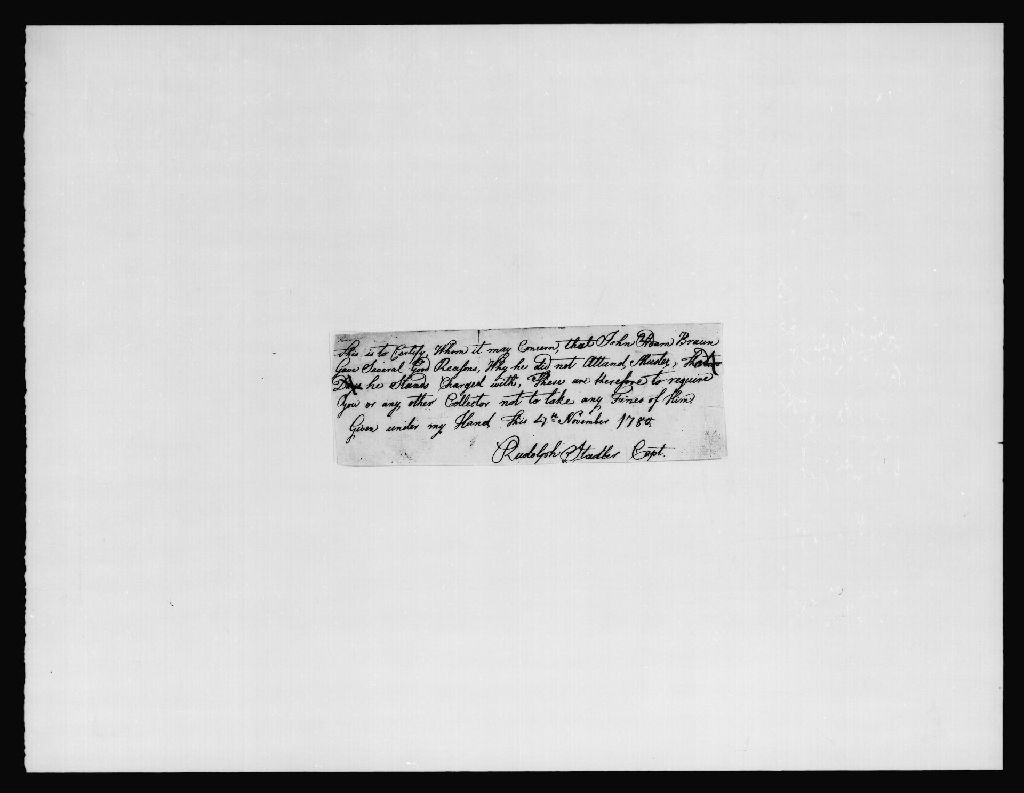 This is to Certify, Whom it may Concern, that John Adam Braun
Gave Several Good Reasons, Why he did not Attend, Muster,
Days he Stands Charged with, These are therefore to require
You or any other Collector not to take any Fines of Him
Given under my Hand this 4th November 1780.
Rudolph Stadler Capt.